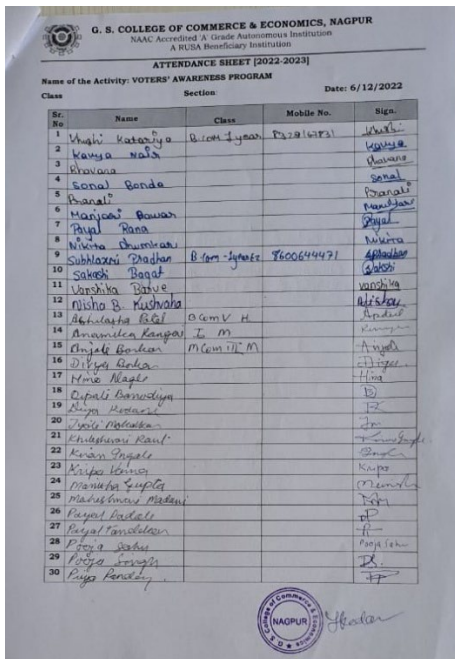 G. S. COLLEGE OF COMMERCE & ECONOMICS, NAGPUR
NAAC Accredited 'A' Grade Autonomous Institution
A RUSA Beneficiary Institution
ATTENDANCE SHEET [2022-2023]
Name of the Activity: VOTERS' AWARENESS PROGRAM
Class Section: Date: 6/12/2022
Sr. No Name Class Mobile No. Sign.
1 Khushi Katariya B.Com I year Khushi
2 Kavya Nair Kavya
3 Bhavana Bhavana
4 Sonal Bonde Sonal
5 Pranali Pranali
6 Manjari Pawar Manjari
7 Payal Rana Payal
8 Nikita Nikita
9 Subhlaxmi Pradhan B.Com 8600644471
10 Sakashi Bagat Sakshi
11 Vanshika Barve vanshika
12 Nisha B. Kushvaha
13 Abhilasha Patel BCom V H
14 Anamika I M
15 Anjali Borkar MCom III M Anjali
16 Divya Borkar
17 Hina Nagle Hina
18 Dipali
19 Diya
20 Jyoti
21 Khileshwari Raut
22 Kiran Ingale
23 Kripa Verma Kripa
24 Manisha Gupta
25 Maheshwari Madavi
26 Payal Padole
27 Payal
28 Pooja Sahu Pooja Sahu
29 Pooja Singh
30 Priya Pandey
G. S. College of Commerce & Economics
NAGPUR